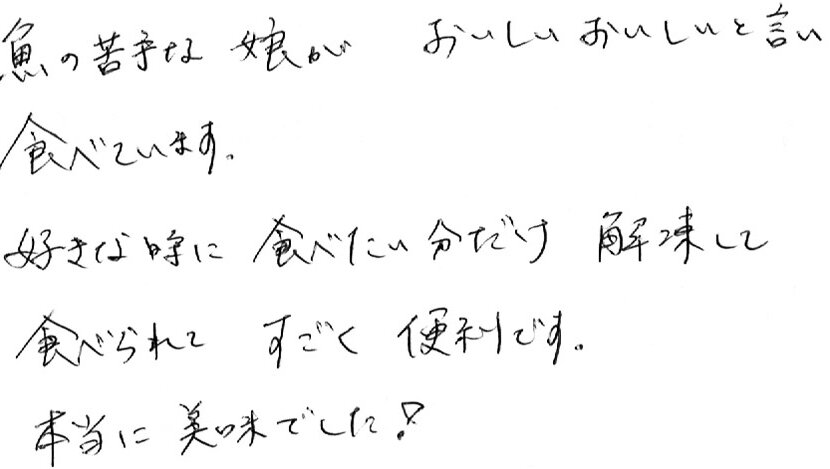 魚の苦手な 娘が おいしいおいしいと言い
食べています。
好きな時に 食べたい分だけ 解凍して
食べられて すごく 便利です。
本当に 美味でした!